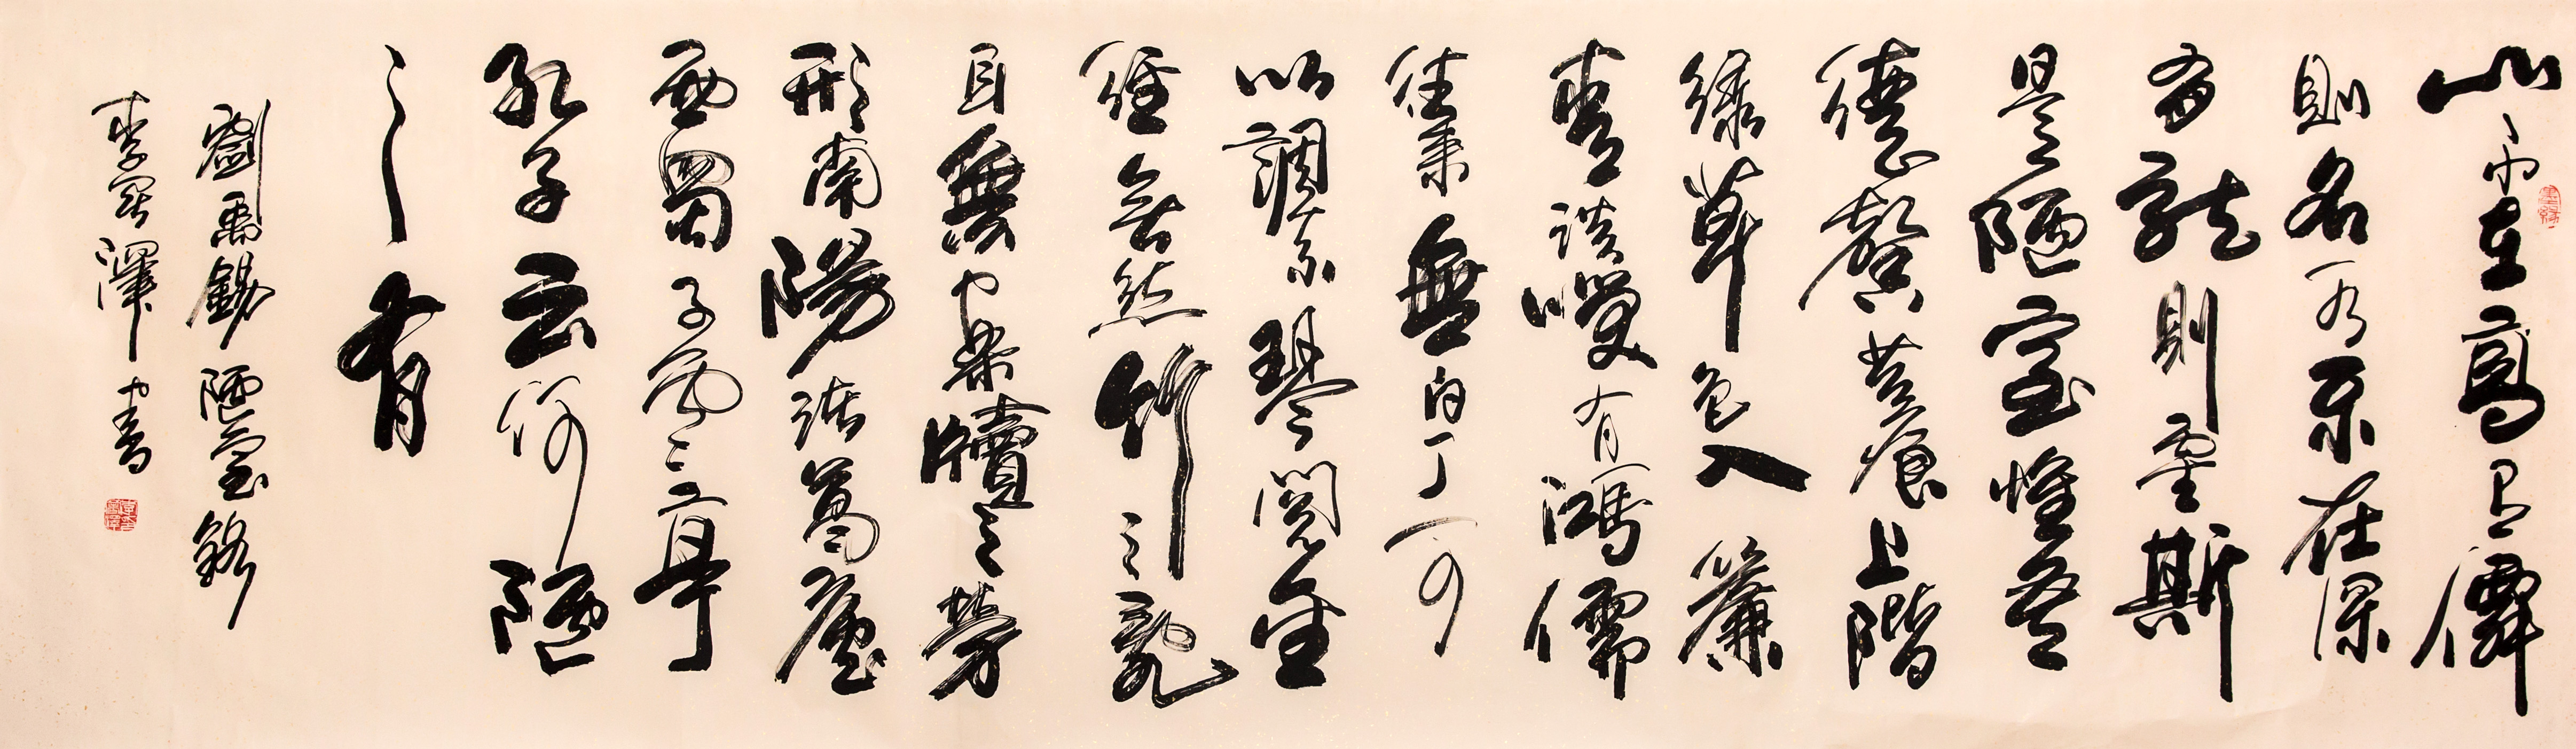 山不在高有僊
則名水不在深
有龍則靈斯
是陋室惟吾
德馨苔痕上階
綠草色入簾
青談笑有鴻儒
往來無白丁可
以調素琴閱金
經無絲竹之亂
耳無案牘之勞
形南陽諸葛廬
西蜀子雲亭
孔子云何陋
之有
劉禹錫陋室銘
李澤書